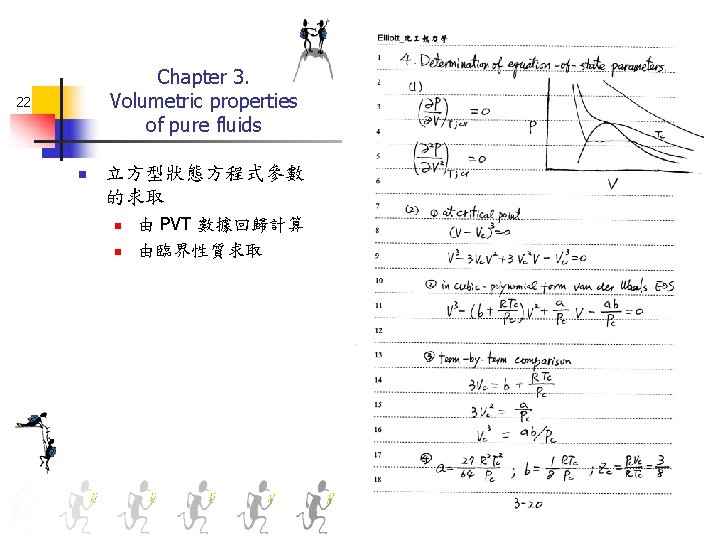 22
Chapter 3.
Volumetric properties
of pure fluids
立方型狀態方程式參數
的求取
由 PVT 數據回歸計算
由臨界性質求取
Elliott_化工熱力學
1 4. Determination of equation-of-state parameters
2 (1)
3 (∂P/∂V)Tjcr = 0
4
5 (∂²P/∂V²)Tjcr = 0
6
P
Tc
V
7 (2) ① at critical point
8 (V - Vc)³ = 0
9 V³ - 3VcV² + 3Vc²V - Vc³ = 0
10 ② in cubic-polynomial form van der Waals EOS
11 V³ - (b + RTc/Pc)V² + a/Pc V - ab/Pc = 0
12
13 ③ term-by-term comparison
14 3Vc = b + RTc/Pc
15 3Vc² = a/Pc
16 Vc³ = ab/Pc
17 ④ a = 27/64 R²Tc²/Pc ; b = 1/8 RTc/Pc ; Zc = PcVc/RTc = 3/8
18
3-20